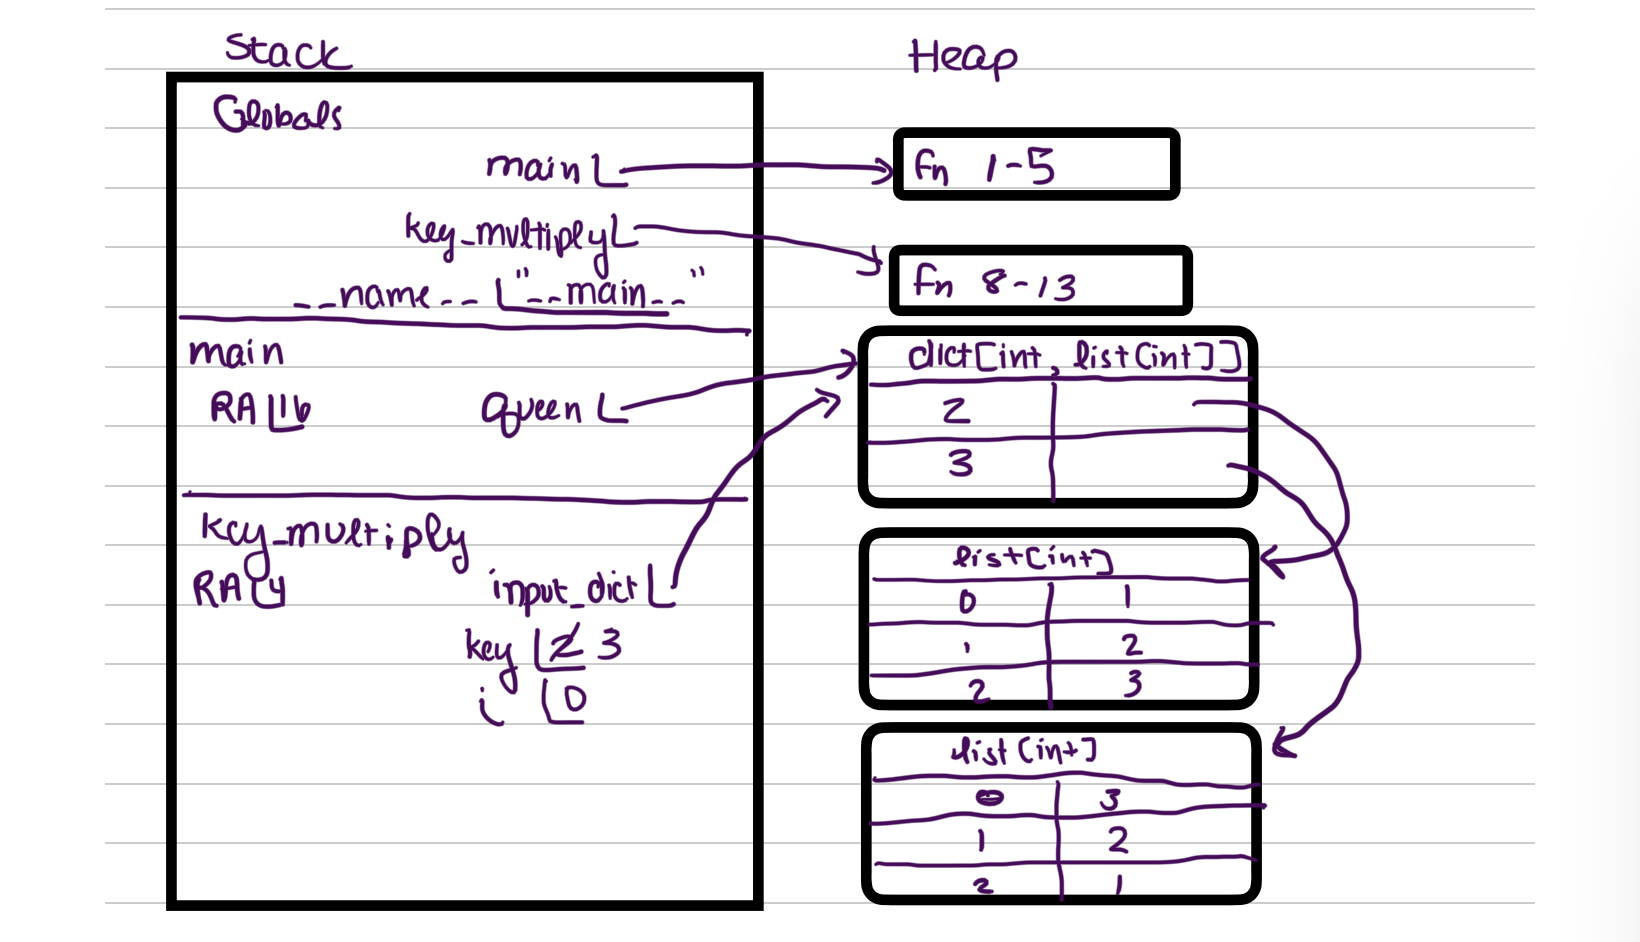 Stack
Globals
main
key_multiply
__name__ "__main__"
main
RA 16 queen
key_multiply
RA 4 input_dict
key 2 3
i 0
Heap
fn 1-5
fn 8-13
dict[int, list[int]]
2
3
list[int]
0 1
1 2
2 3
list[int]
0 3
1 2
2 1